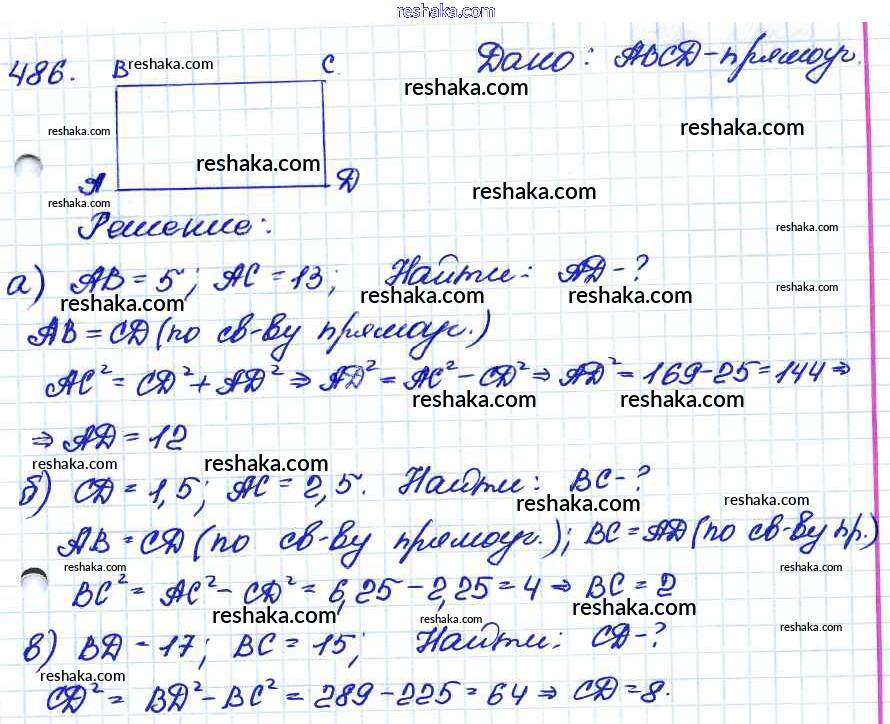 reshaka.com
486. B reshaka.com C Дано: ABCD-прямоуг.
reshaka.com
reshaka.com reshaka.com
reshaka.com
A D reshaka.com
reshaka.com
Решение: reshaka.com
а) AB = 5; AC = 13; Найти: AD-?
reshaka.com reshaka.com reshaka.com
AB = CD (по св-ву прямоуг.)
reshaka.com
AC² = CD² + AD² ⇒ AD² = AC² - CD² ⇒ AD² = 169-25 = 144 ⇒
reshaka.com reshaka.com
⇒ AD = 12
reshaka.com reshaka.com
б) CD = 1,5; AC = 2,5. Найти: BC-?
reshaka.com reshaka.com
AB = CD (по св-ву прямоуг.); BC = AD (по св-ву пр.)
reshaka.com reshaka.com
BC² = AC² - CD² = 6,25 - 2,25 = 4 ⇒ BC = 2
reshaka.com reshaka.com reshaka.com
в) BD - 17; BC = 15; Найти: CD-?
reshaka.com
reshaka.com reshaka.com
CD² = BD² - BC² = 289 - 225 = 64 ⇒ CD = 8.
reshaka.com